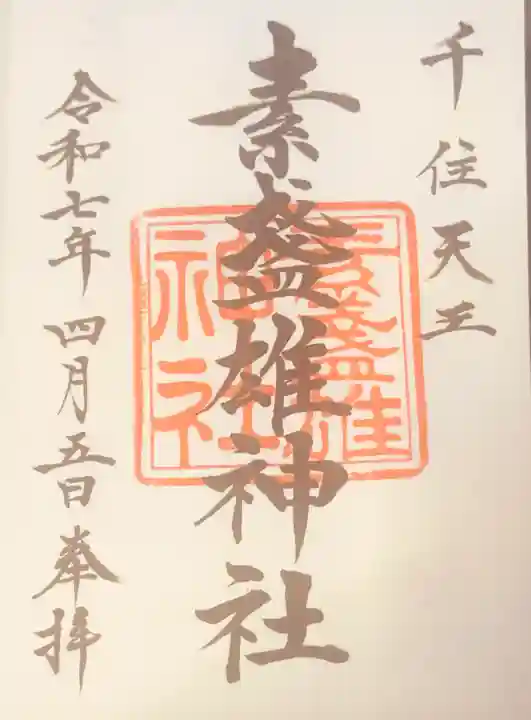 千住天王
素盞雄神社
素盞雄
神社
令和七年四月五日奉拝